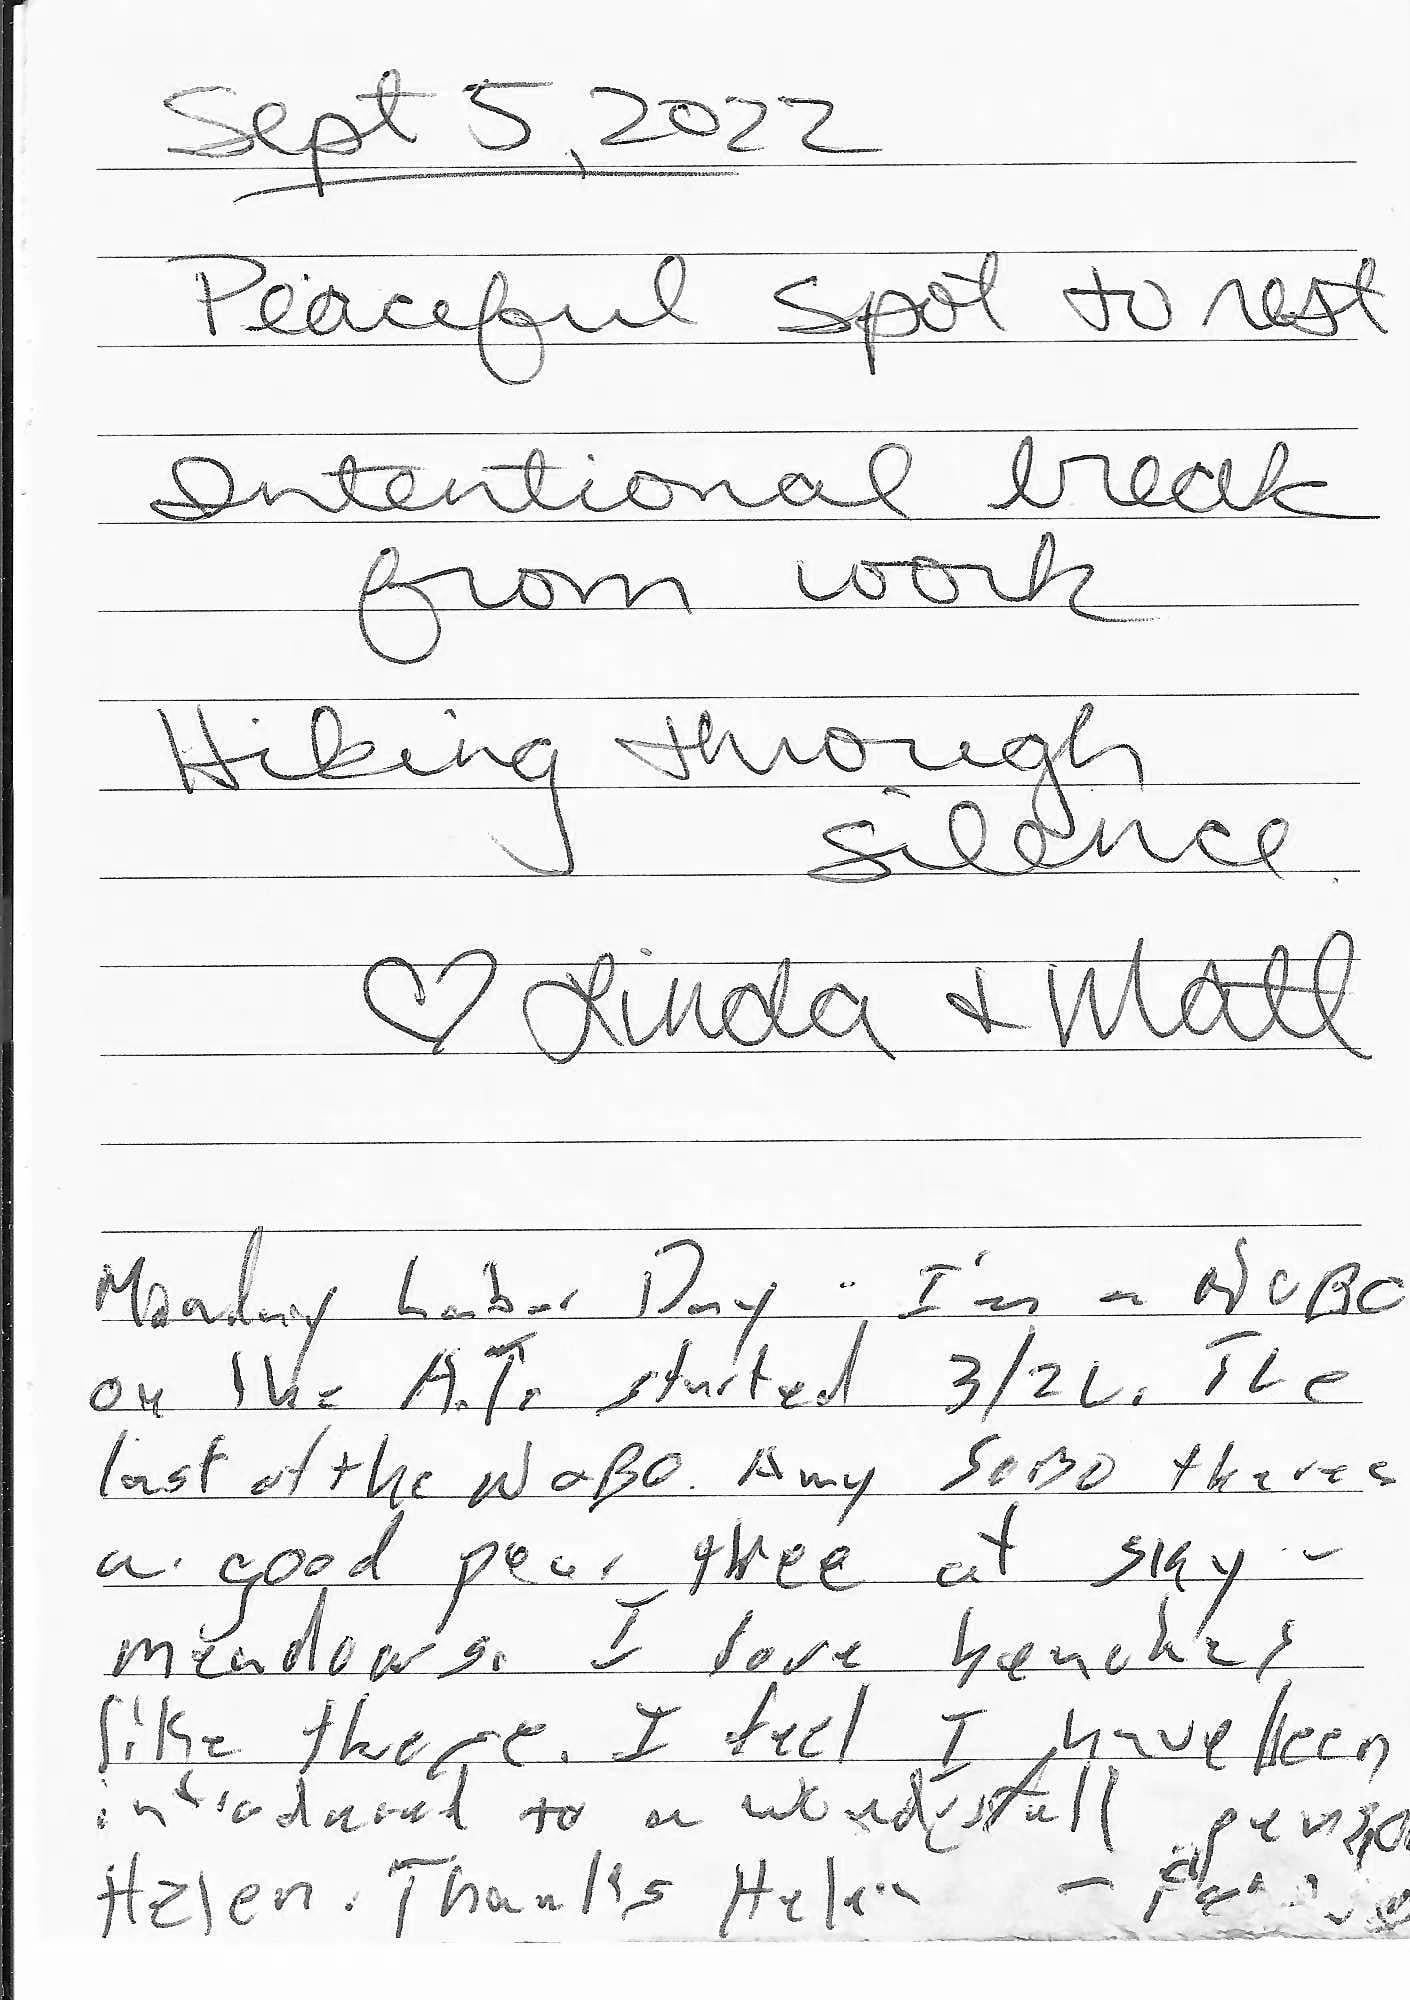 Sept 5, 2022
Peaceful spot to rest
Intentional break
from work
Hiking through
silence
♡ Linda + Matt
Monday Labor Day - I'm a NOBO
on the A.T. started 3/22. The
last of the NOBO. Any SOBO theres
a good pear tree at sky -
meadows. I love benches
like these. I feel I have been
introduced to a wonderfull person
Helen. Thanks Helen -